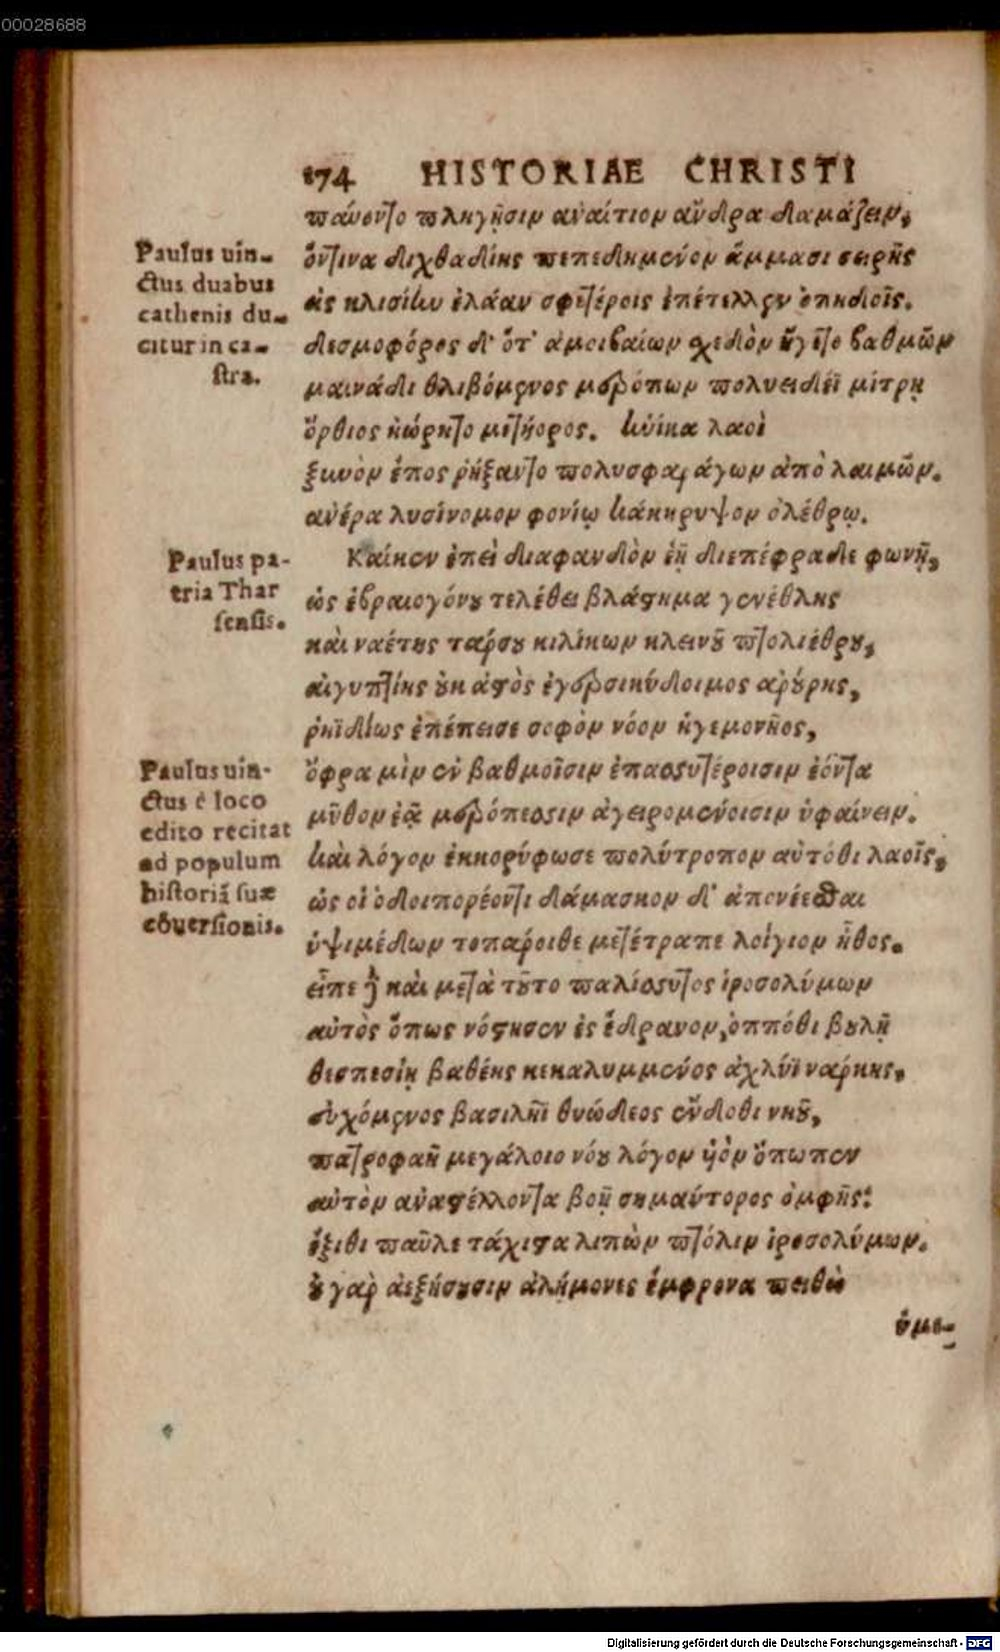 00028688
174 HISTORIAE CHRISTI
παύοντο πληγῇσιν ἀναίτιον ἄνδρα δαμάζειν,
Paulus uin-
ctus duabus
cathenis du-
citur in ca-
stra.
ὅντινα διχθαδίης πεπεδημένον ἅμμασι σειρῆς
εἰς κλισίην ἐλάαν σφετέροις ἐπέτελλεν ὀπηδοῖς.
δεσμοφόρος δ' ὅτ' ἀμοιβαίων σχεδὸν ἵκετο βαθμῶν
μαινάδι θλιβόμενος μερόπων πολυειδέϊ μίτρῃ
ὄρθιος ᾐώρητο μετήορος. ἡνίκα λαοὶ
ξυνὸν ἔπος ῥήξαντο πολυσφαράγων ἀπὸ λαιμῶν.
ἀνέρα λυσίνομον φονίῳ κάκηρυψον ὀλέθρῳ.
Paulus pa-
tria Thar
sensis.
Καίκεν ἐπεὶ διαφανδὸν ἑῇ διεπέφραδε φωνῇ,
ὡς ἑβραιογόνου τελέθει βλάστημα γενέθλης
καὶ ναέτης ταρσοῦ κιλίκων κλεινοῦ πτολιέθρου,
αἰγυπτίης οὐκ ἀστὸς ἐγερσικύδοιμος ἀρούρης,
ῥηϊδίως ἐπέπεισε σοφὸν νόον ἡγεμονῆος,
Paulus uin-
ctus è loco
edito recitat
ad populum
historiã suæ
cõuersionis.
ὄφρα μὶν ἐν βαθμοῖσιν ἐπασσυτέροισιν ἐόντα
μῦθον ἐᾷ μερόπεσσιν ἀγειρομένοισιν ὑφαίνειν.
καὶ λόγον ἐκκορύφωσε πολύτροπον αὐτόθι λαοῖς,
ὡς οἱ ὁδοιπορέοντι δάμασκον δ' ἀπονέεσθαι
ὑψιμέδων τοπάροιθε μετέτραπε λοίγιον ἦθος.
εἶπε δὲ καὶ μετὰ τοῦτο παλίσσυτος ἱροσολύμων
αὐτὸς ὅπως νόστησεν ἐς ἕδρανον, ὁππόθι βουλῇ
θεσπεσίῃ βαθέης κεκαλυμμένος ἀχλύϊ νάρκης,
εὐχόμενος βασιλῆϊ θυώδεος ἔνδοθι νηοῦ,
πατροφαῆ μεγάλοιο νόου λόγον υἱὸν ὄπωπεν
αὐτὸν ἀναστέλλοντα βοῇ σημάντορος ὀμφῆς:
ἔξιθι παῦλε τάχιστα λιπὼν πτόλιν ἱροσολύμων.
οὐ γὰρ ἀεξήσουσιν ἀλήμονες ἔμφρονα πειθὼ
ὑμε-
Digitalisierung gefördert durch die Deutsche Forschungsgemeinschaft - DFG